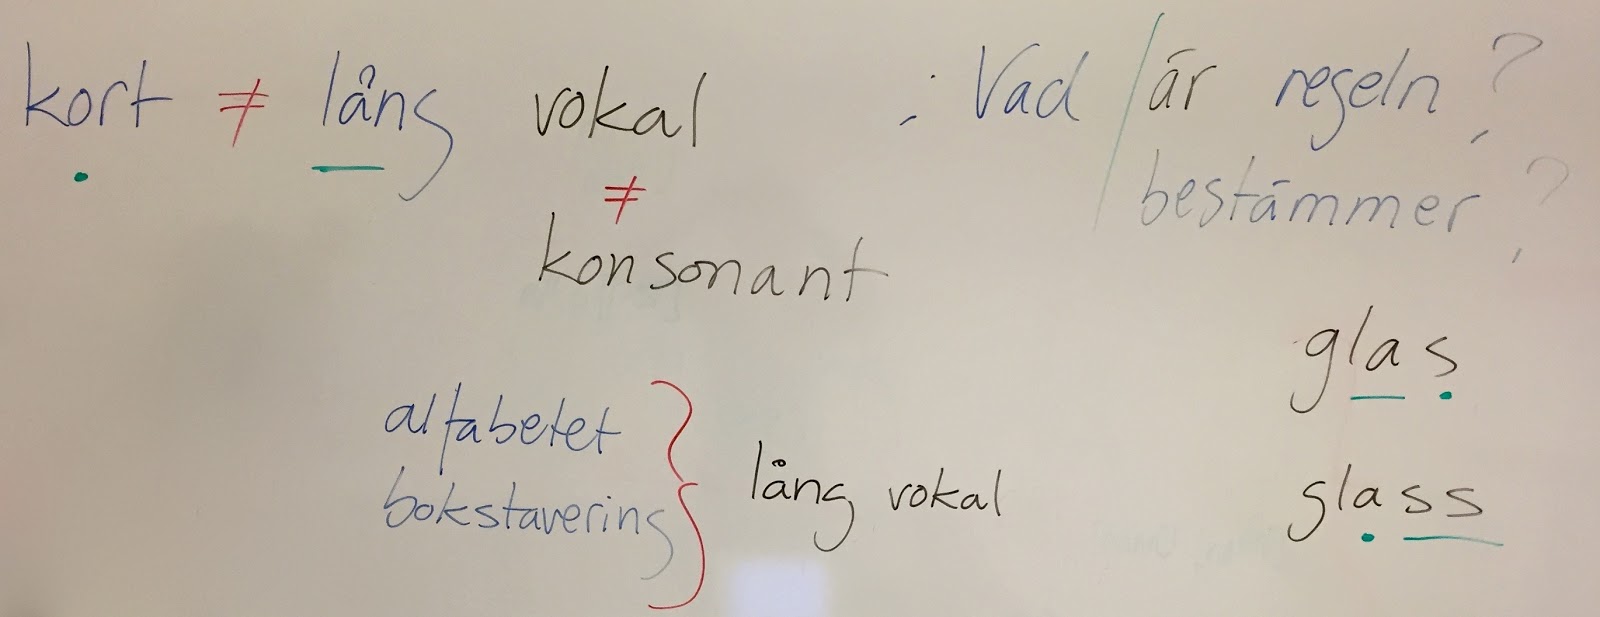 kort ≠ lång vokal : Vad / är regeln?
bestämmer?
≠
konsonant
glas
alfabetet
lång vokal
glass
bokstavering